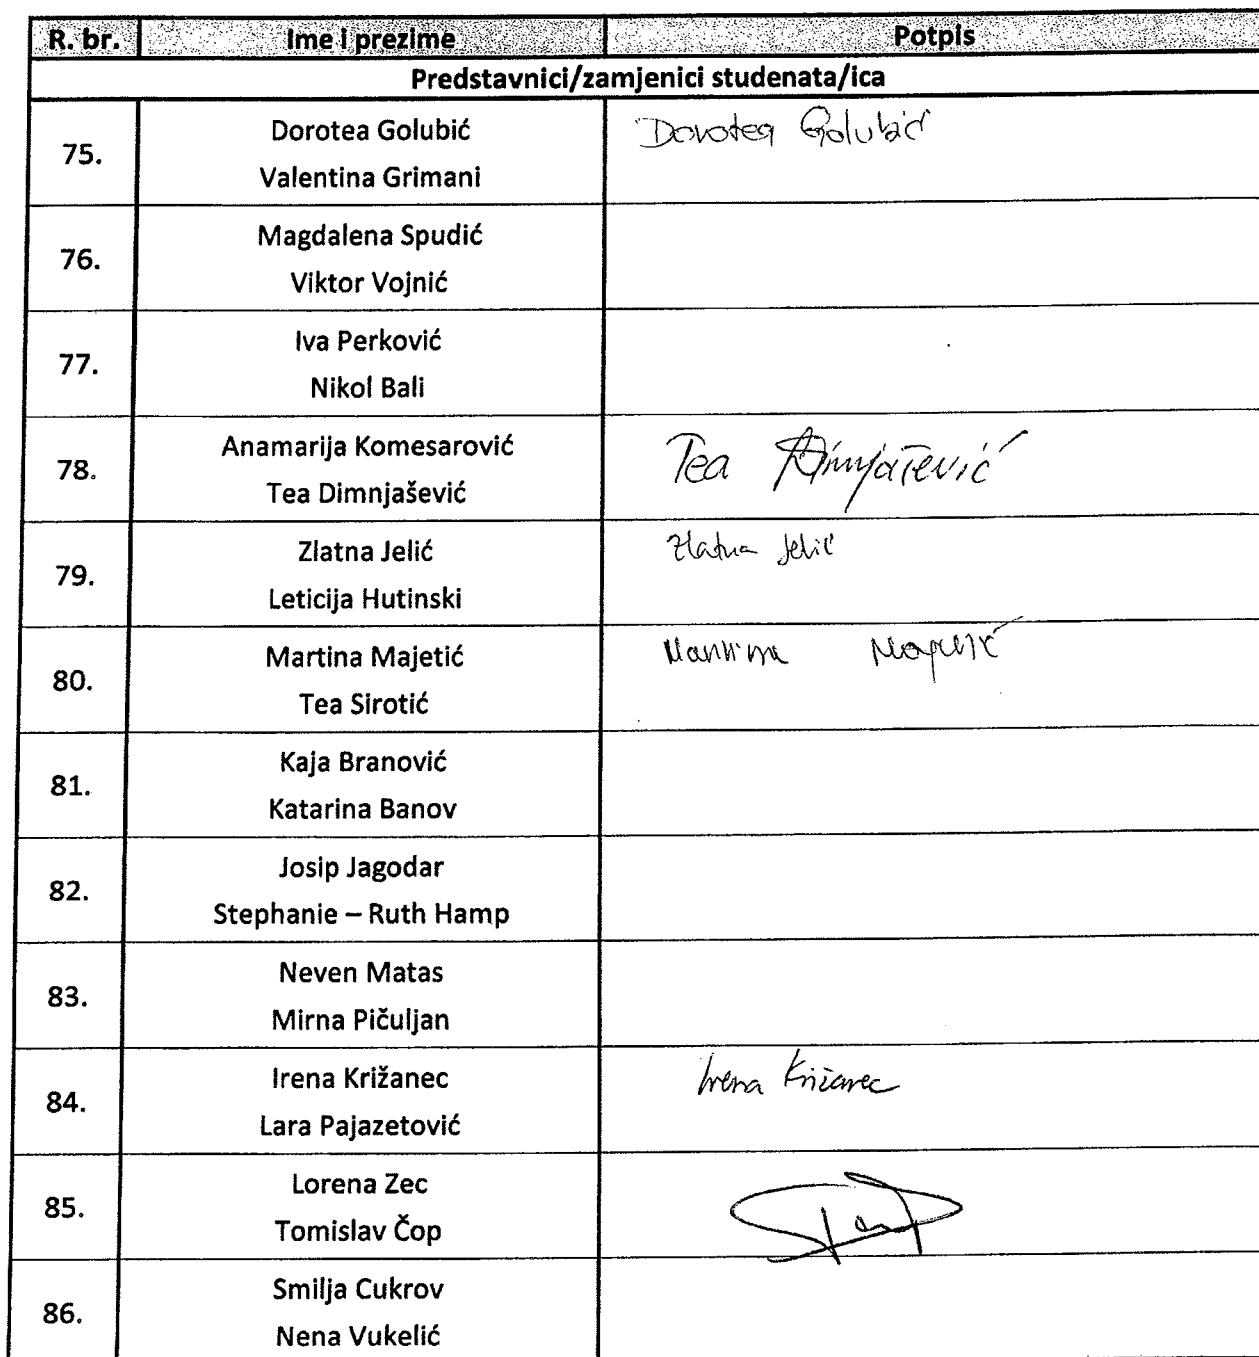 R. br. Ime i prezime Potpis
Predstavnici/zamjenici studenata/ica
75. Dorotea Golubić Dorotea Golubić
Valentina Grimani
76. Magdalena Spudić
Viktor Vojnić
77. Iva Perković
Nikol Bali
78. Anamarija Komesarović Tea Dimnjašević
Tea Dimnjašević
79. Zlatna Jelić Zlatna Jelić
Leticija Hutinski
80. Martina Majetić Martina Majetić
Tea Sirotić
81. Kaja Branović
Katarina Banov
82. Josip Jagodar
Stephanie – Ruth Hamp
83. Neven Matas
Mirna Pičuljan
84. Irena Križanec Irena Križanec
Lara Pajazetović
85. Lorena Zec
Tomislav Čop
86. Smilja Cukrov
Nena Vukelić